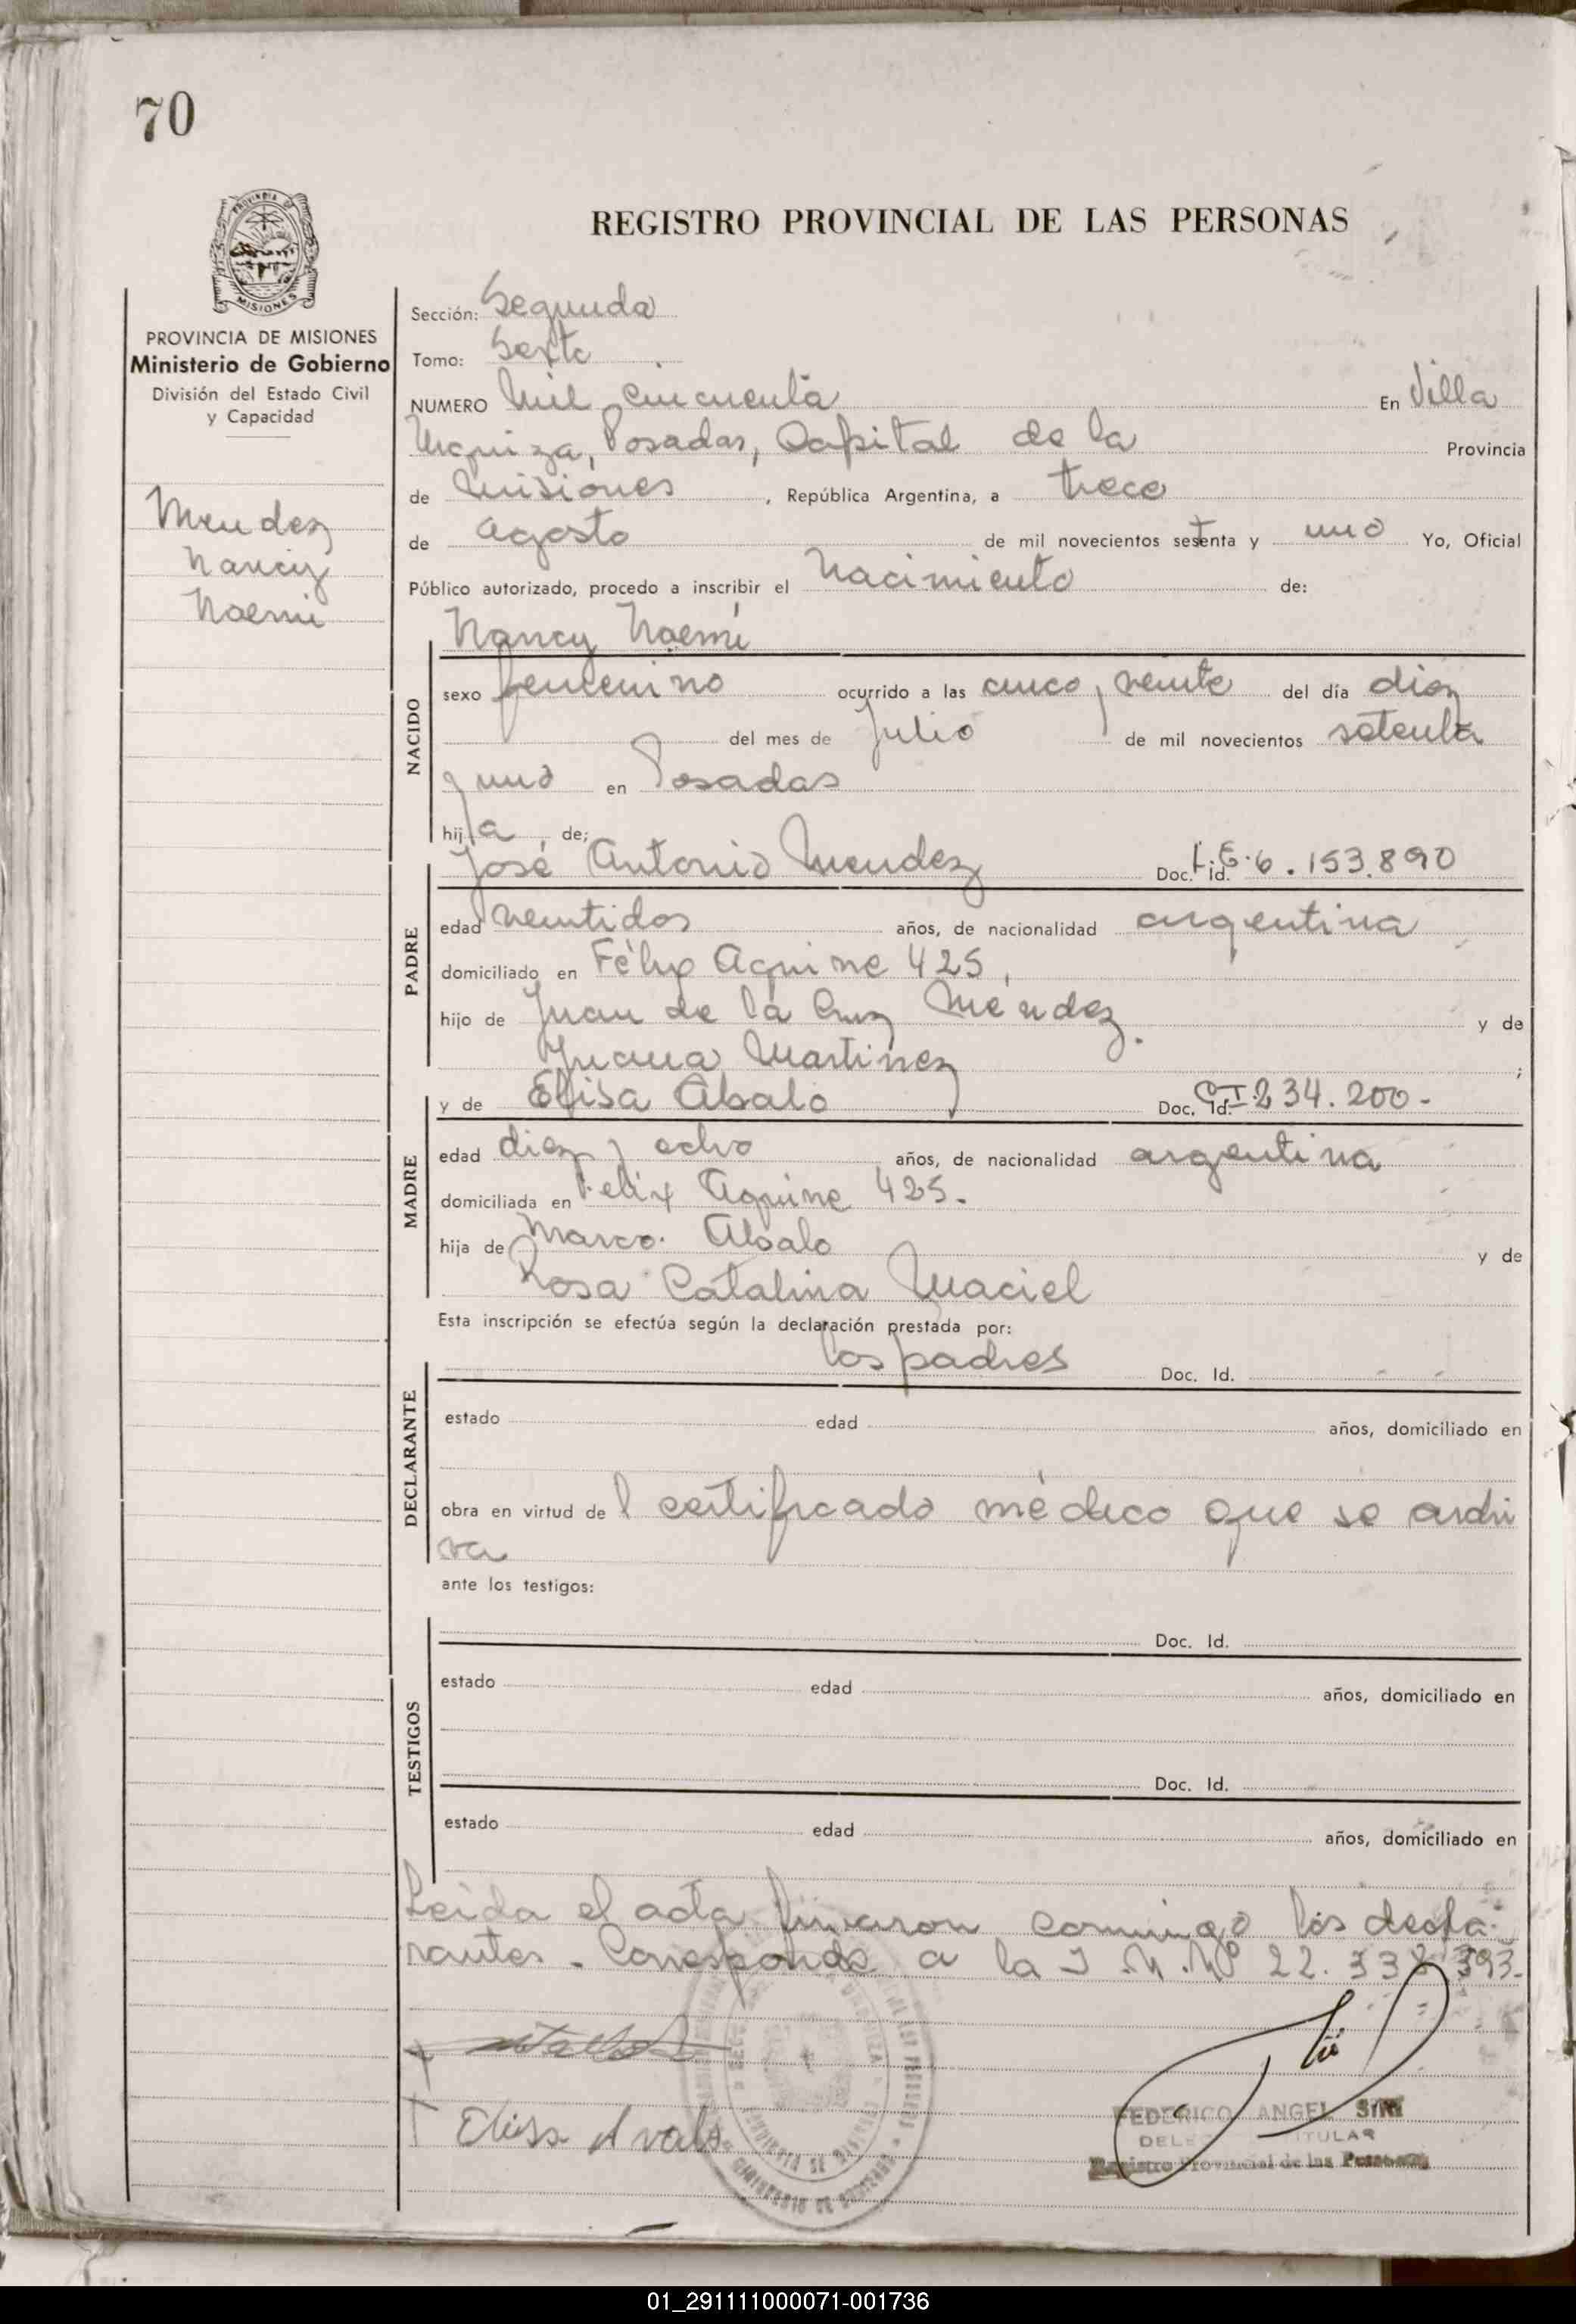 70
PROVINCIA DE
MISIONES
REGISTRO PROVINCIAL DE LAS PERSONAS
PROVINCIA DE MISIONES
Ministerio de Gobierno
División del Estado Civil
y Capacidad
Mendez
Nancy
Noemi
Sección: Segunda
Tomo: Sexto
NUMERO Mil cincuenta En Villa
Urquiza, Posadas, Capital de la Provincia
de Misiones, República Argentina, a trece
de agosto de mil novecientos setenta y uno Yo, Oficial
Público autorizado, procedo a inscribir el Nacimiento de:
Nancy Noemí
NACIDO
sexo femenino ocurrido a las cinco y veinte del día diez
del mes de Julio de mil novecientos setenta
y uno en Posadas
hija de;
José Antonio Mendez Doc. Id. L.E. 6.153.890
PADRE
edad veintidos años, de nacionalidad argentina
domiciliado en Félix Aguirre 425,
hijo de Juan de la Cruz Méndez. y de
Juana Martinez ;
y de Elisa Abalo Doc. Id. C.I. 234.200-
MADRE
edad diez y ocho años, de nacionalidad argentina
domiciliada en Felix Aguirre 425.
hija de Marco Abalo y de
Rosa Catalina Maciel
Esta inscripción se efectúa según la declaración prestada por:
los padres Doc. Id.
DECLARANTE
estado edad años, domiciliado en
obra en virtud del certificado médico que se archi
va
ante los testigos:
Doc. Id.
TESTIGOS
estado edad años, domiciliado en
Doc. Id.
estado edad años, domiciliado en
Leida el acta firmaron conmigo los decla-
rantes. Corresponde a la I.N.Nº 22.338.393.
Elisa Avalo
FEDERICO ANGEL SIRI
TITULAR
Registro Provincial de las Personas
01_291111000071-001736